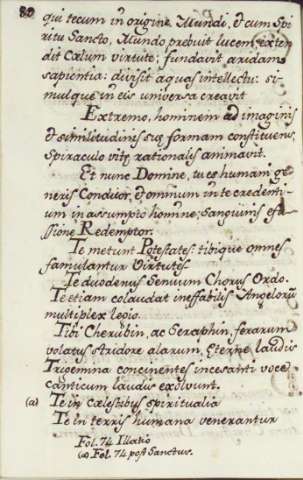 80
qui tecum in origine Mundi, et cum Spi
ritu Sancto, Mundo prebuit lucem, exten
dit Cælum virtute; fundavit aridam
sapientia: divisit aquas intellectu: si-
mulque in eis universa creavit
Extremo, hominem ad imaginis
et similitudinis suę formam constituens,
Spiraculo vitę rationalis animavit.
Et nunc Domine, tu es humani ge-
neris Conditor, et omnium in te credenti-
um in assumpto homine, Sanguinis effu
ssione Redemptor.
Te metunt Potestates: tibique omnes
famulantur Virtutes.
Te duodenus Senium Chorus Ordo.
Te etiam colaudat ineffabilis Angelorũ
multiplex legio.
Tibi Cherubin, ac Seraphin, ferarum
volatus stridore alarum, Eterne laudis
Trigemina concinentes incesanti voce
Canticum laudis exolvunt.
(a) Te in Cælestibus spiritualia
Te in terris humana venerantur
Fol. 74 Illatio
(a) Fol. 74 post Sanctus.